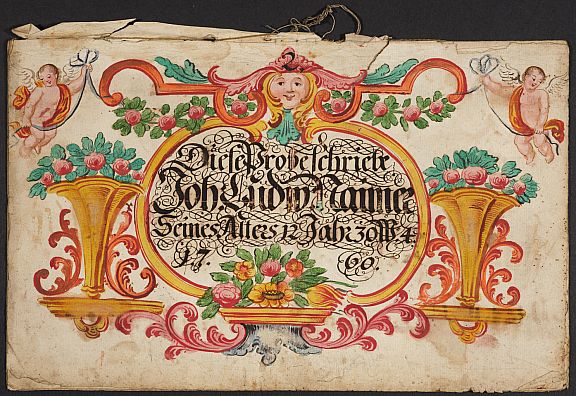 2
Diese Probe schriebe
Joh Ludw
Seines Alters 12 Jahr 30 W 4.
17. 60.